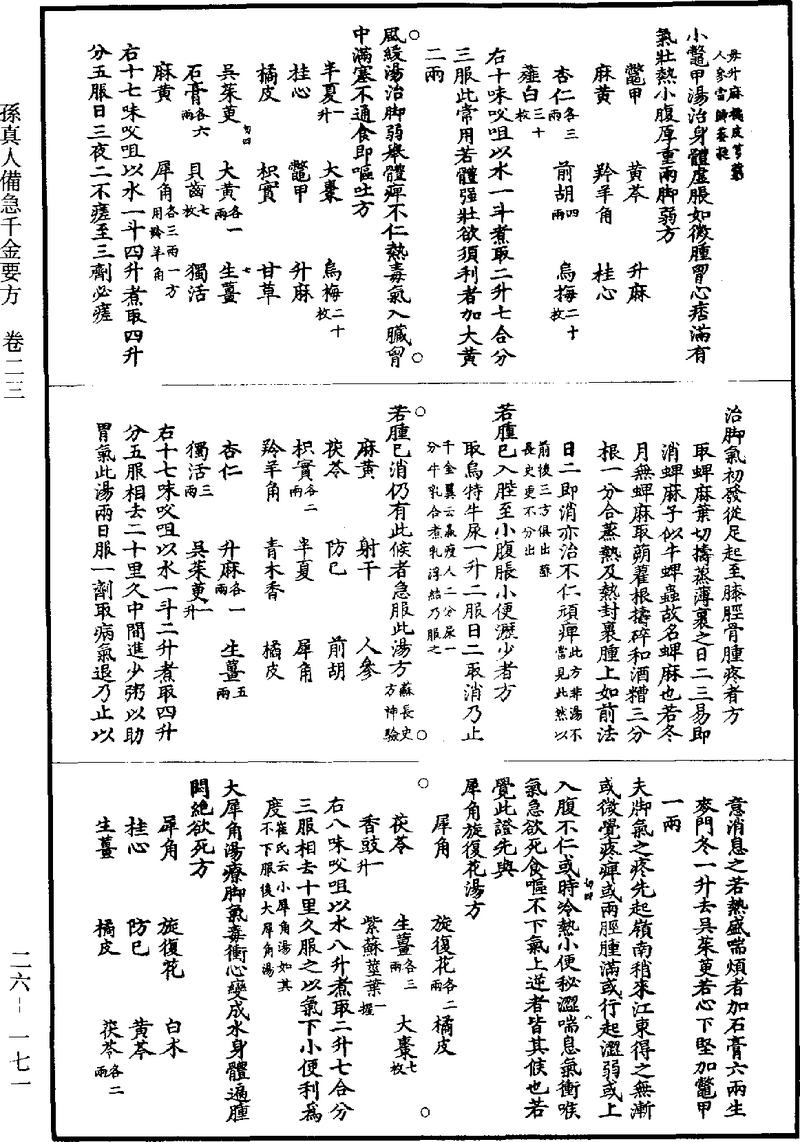 孫真人備急千金要方　卷二三
毋升麻橘皮芎藭
人參當歸桑椹
小鼈甲湯治身體虛脹如微腫胃心痞滿有
氣壯熱小腹厚重兩脚弱方
鼈甲　黃芩　升麻
麻黃　羚羊角　桂心
杏仁各三兩　前胡四兩　烏梅二十枚
薤白三十枚
右十味㕮咀以水一斗煮取二升七合分
三服此常用若體强壯欲須利者加大黃
二兩
風緩湯治脚弱舉體痺不仁熱毒氣入臟胷
中滿塞不通食即嘔吐方
半夏一升　大棗　烏梅二十枚
桂心　鼈甲　升麻
橘皮　枳實　甘草
吳茱萸　大黃各一兩　生薑
石膏各六兩　貝齒七枚　獨活
麻黃　犀角各三兩一方用羚羊角
右十七味㕮咀以水一斗四升煮取四升
分五服日三夜二不瘥至三劑必瘥
治脚氣初發從足起至膝脛骨腫疼者方
取蜱麻葉切擣蒸薄裹之日二三易即
消蜱麻子似牛蜱蟲故名蜱麻也若冬
月無蜱麻取蒴藋根擣碎和酒糟三分
根一分合蒸熱及熱封裹腫上如前法
日二即消亦治不仁頑痺此方非湯不當見此然以
前後三方俱出蘇長史更不分出
若腫已入䏶至小腹脹小便澀少者方
取烏特牛尿一升二服日二取消乃止
千金翼云羸瘦人二分尿一分牛乳合煮乳浮結乃服之
若腫已消仍有此候者急服此湯方蘇長史方神驗
麻黃　射干　人參
茯苓　防已　前胡
枳實各二兩　半夏　犀角
羚羊角　青木香　橘皮
杏仁　升麻各一兩　生薑五兩
獨活三兩　吳茱萸一升
右十七味㕮咀以水一斗二升煮取四升
分五服相去二十里久中間進少粥以助
胃氣此湯兩日服一劑取病氣退乃止以
意消息之若熱盛喘煩者加石膏六兩生
麥門冬一升去吳茱萸若心下堅加鼈甲
一兩
夫脚氣之疼先起嶺南稍來江東得之無漸
或微覺疼痺或兩脛腫滿或行起澀弱或上
入腹不仁或時冷熱小便秘澀喘息氣衝喉
氣急欲死食嘔不下氣上逆者皆其候也若
覺此證先與
犀角旋復花湯方
犀角　旋復花各二兩　橘皮
茯苓　生薑各三兩　大棗七枚
香豉一升　紫蘇莖葉一握
右八味㕮咀以水八升煮取二升七合分
三服相去十里久服之以氣下小便利爲
度崔氏云小犀角湯如其不下服後大犀角湯
大犀角湯療脚氣毒衝心變成水身體遍腫
悶絕欲死方
犀角　旋復花　白朮
桂心　防已　黃芩
生薑　橘皮　茯苓各二兩
二六－一七一